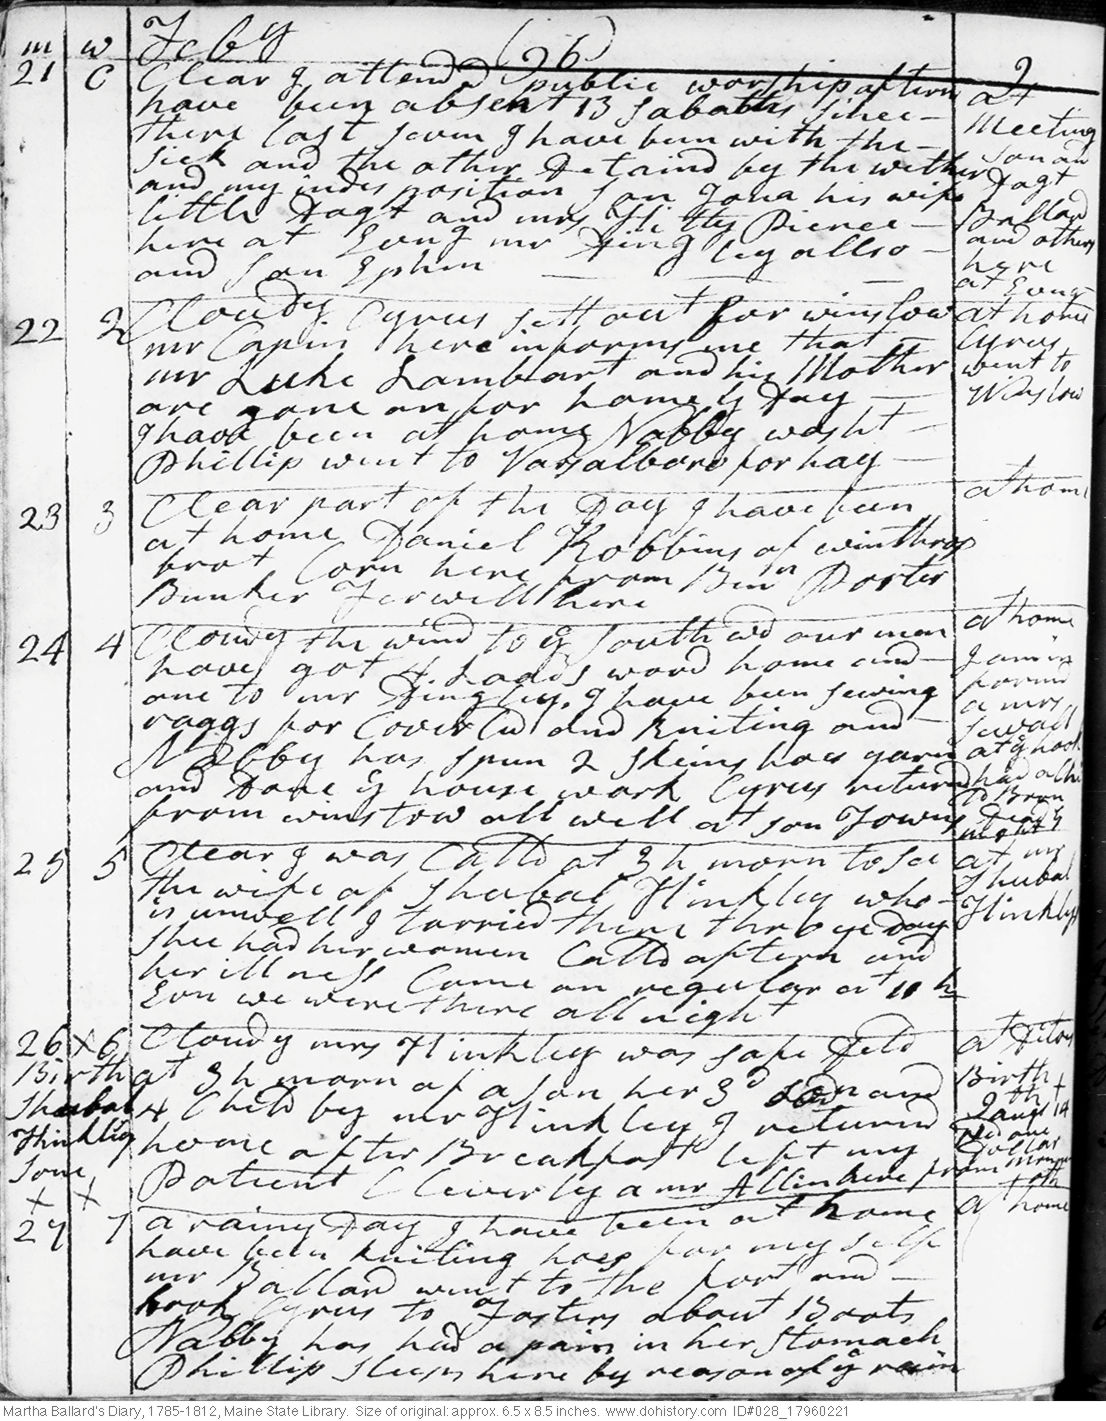 m w Feby (26) 2
21 C Clear I attendd public worship aftern at
have been absent 13 Sabaths since Meeting
there last seven I have been with the son and
sick and the other Detaind by the wether Dagt
and my indisposition son Jona his wife Ballard
little Dagt and mrs Hitty Pierce and others
here at Evng mr Dingley allso here
and son Ephm at Evng
22 2 Cloudy Cyrus sett out for winslow at home
mr Capin here informs me that Cyrus
mr Luke Lambart and his Mother went to
are gone on for home ys Day Winslow
I have been at home Nabby washt
Phillip went to Vassalboro for hay
23 3 Clear part of the Day I have been at home
at home Daniel Robbins of winthrop
brot Corn here from Benn Porter
Bunker Ferwell here
24 4 Cloudy the wind to ye southwd our men at home
have got 4 Loads wood home and I am in
one to mr Dingleys. I have been sewing formd
raggs for Coverlid and Kniting and a mrs
Nabby has spun 2 skeins hoes yarn Sewall
and Done ye house work Cyrus returnd at ye hook
from winslow all well at son Towns had a Chi
25 5 Clear I was Calld at 3 h morn to see at mr
the wife of Shubal Hinkley who Shubal
is unwell I tarried there thro ye Day Hinkleys
shee had her women Calld aftern and
her illness Came on regular at 11 h
Evn we were there all night
26 x 6 Cloudy mrs Hinkley was safe Deld at Ditos
Birth at 3 h morn of a son her 3d son and Birth
Shubal 4 Child by mr Hinkley I returnd
Hinkley home after Breakfast left my
sone Patient Cleverly a mr Allin here from Monmoth
x x
27 7 a rainy Day I have been at home at home
have been kniting hoes for my self
mr Ballard went to the fort and
hook Cyrus to Fosters about Boots
Nabby has had a pain in her stomach
Phillip sleeps here by reason of ye rain
Martha Ballard's Diary, 1785-1812, Maine State Library. Size of original: approx. 6.5 x 8.5 inches. www.dohistory.com ID#028_17960221